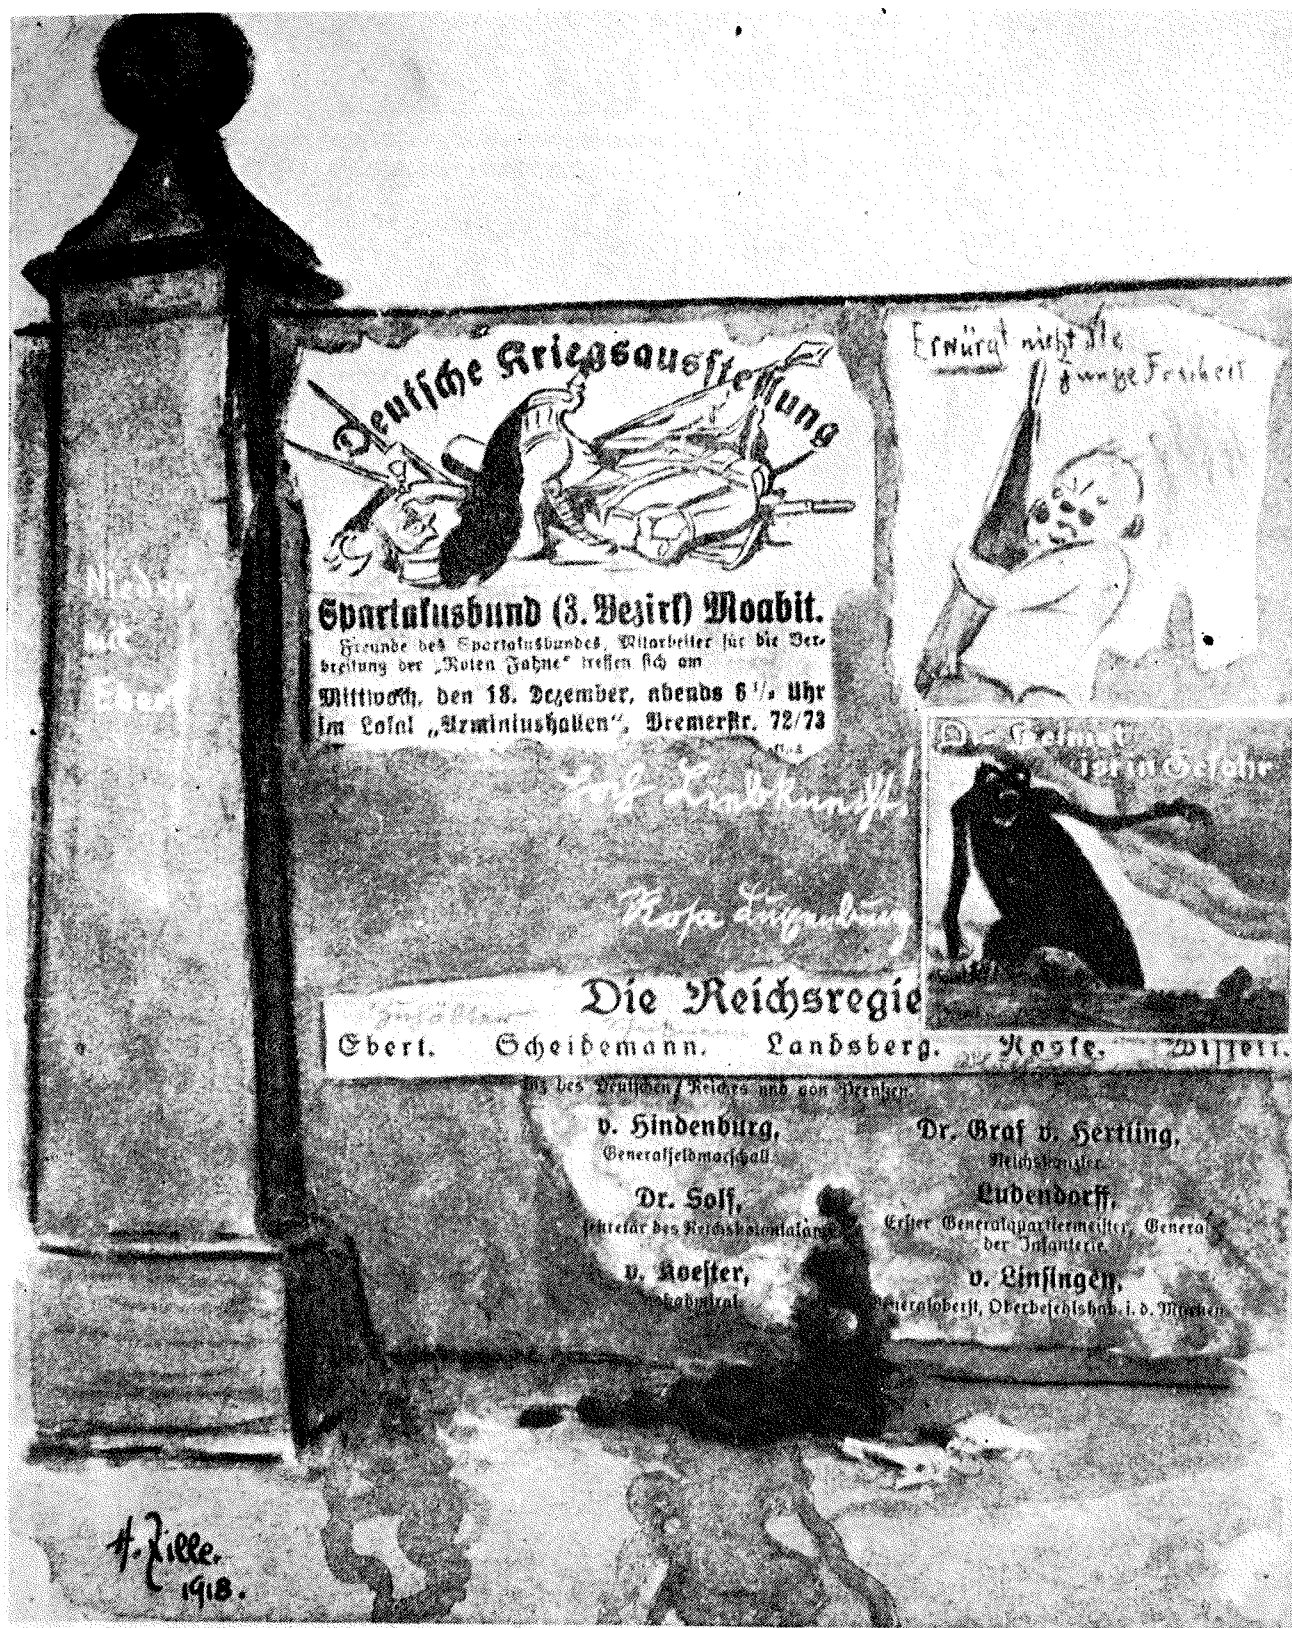 Deutsche Kriegsausstellung
Erwürgt nicht die
junge Freiheit
Nieder
mit
Ebert
Spartakusbund (3. Bezirk) Moabit.
Freunde des Spartakusbundes, Mitarbeiter für die Ver-
breitung der „Roten Fahne“ treffen sich am
Mittwoch, den 18. Dezember, abends 6½ Uhr
im Lokal „Arminiushallen“, Bremerstr. 72/73
Die Heimat
ist in Gefahr
Hoch Liebknecht!
Rosa Luxenburg
Die Reichsregie
Ebert. Scheidemann. Landsberg. Noske. Wissell.
des Deutschen Reiches und von Preußen.
v. Hindenburg,
Generalfeldmarschall
Dr. Graf v. Hertling,
Reichskanzler
Dr. Solf,
sekretär des Reichskolonialamts
Ludendorff,
Erster Generalquartiermeister, General
der Infanterie.
v. Koester,
v. Linsingen,
Generaloberst, Oberbefehlshab. i. d. Marken
H. Zille.
1918.